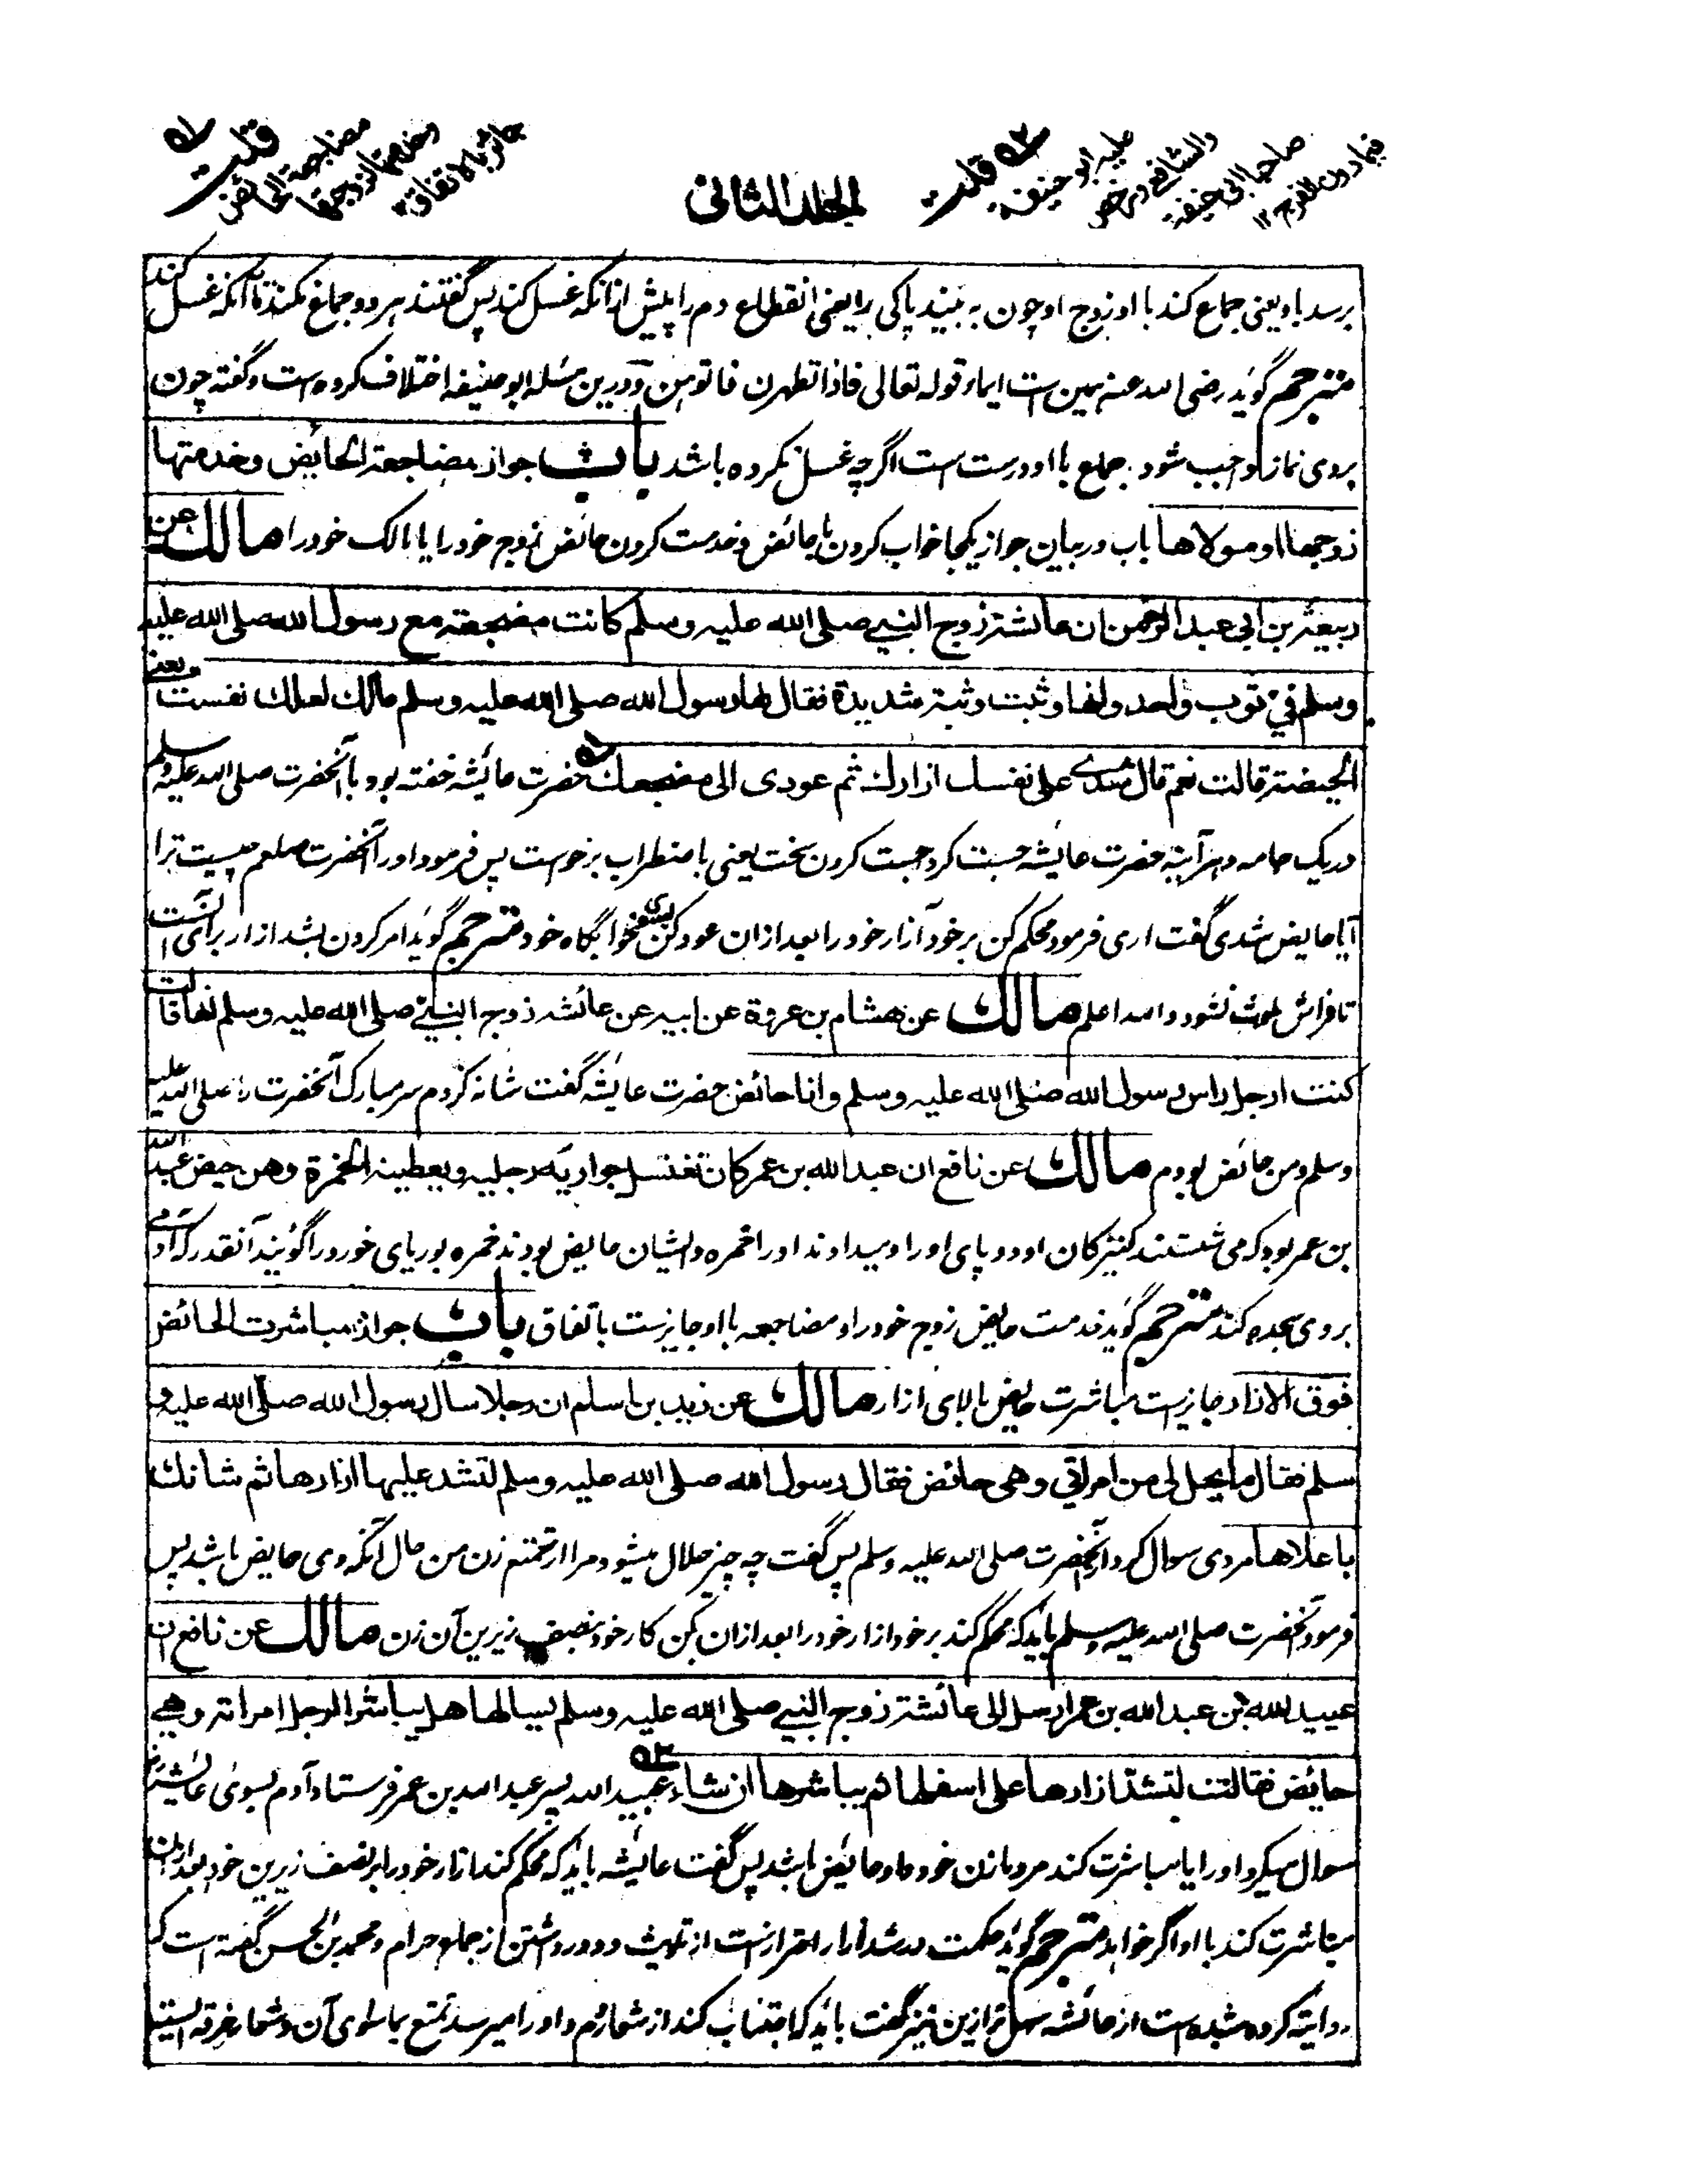 الجلد الثانی
۵۲ قلت علیہ ابو حنیفہ والشافعی ورخص صاحبا ابی حنیفة فیما دون الفرج ۱۲
۵۱ قلت مضاجعة الحائض وخدمتها لزوجها جائز بالاتفاق ۱۲
برسد باو یعنی جماع کند با او زوج او چون به بیند پاکی را یعنی انقطاع دم را پیش ازانکه غسل کند پس گفتند هر دو جماع نکند تا آنکه غسل کند
مترجم گوید رضی الله عنه همین ست ایماء قوله تعالی فاذا تطهرن فاتوهن و درین مسئله ابو حنیفه اختلاف کرده ست و گفته چون
بروی نماز واجب شود جماع با او درست ست اگرچه غسل نکرده باشد باب جواز مضاجعة الحایض وخدمتها
زوجها او مولاها باب در بیان جواز یکجا خواب کردن با حائض و خدمت کردن حائض زوج خود را یا مالک خود را مالك عن
ربیعة بن ابی عبد الرحمن ان عائشة زوج النبی صلی الله علیه وسلم کانت مضجعة مع رسول الله صلی الله علیه
وسلم فی ثوب واحد وانها وثبت وثبة شدیدة فقال لها رسول الله صلی الله علیه وسلم مالك لعلك نفست یعنی
الحیضة قالت نعم قال شدی علی نفسك ازارك ثم عودی الی مضجعك ۵۱ حضرت عائیشه خفته بود با آنحضرت صلی الله علیه وسلم
در یک جامه و هر آینه حضرت عایشه جست کرد جست کردن سخت یعنی باضطراب برخوست پس فرمود او را آنحضرت صلعم چیست ترا
آیا حایض شدی گفت اری فرمود محکم کن بر خود آزار خود را بعد ازان عود کن بسوی خوابگاه خود مترجم گوید امر کردن بشد ازار برای آنست
تا فراش ملوث نشود والله اعلم مالك عن هشام بن عروة عن ابیه عن عائشه زوج النبی صلی الله علیه وسلم انها قالت
کنت ارجل راس رسول الله صلی الله علیه وسلم وانا حائض حضرت عایشه گفت شانه کردم سر مبارک آنحضرت را صلی الله علیه
وسلم و من حائض بودم مالك عن نافع ان عبد الله بن عمر کان تغسل جواریه رجلیه ویعطینه الخمرة وهن حیض عبد الله
بن عمر بود که می شستند کنیزکان او دو پای او را و میدادند او را خمره و ایشان حایض بودند خمره بوریای خورد را گویند آنقدر که آدمی
بروی سجده کند مترجم گوید خدمت حایض زوج خود را و مضاجعه با او جایزست باتفاق باب جواز مباشرت الحائض
فوق الازار جایزست مباشرت حایض بالای ازار مالك عن زید بن اسلم ان رجلا سال رسول الله صلی الله علیه و
سلم فقال ما یحل لی من امراتی وهی حائض فقال رسول الله صلی الله علیه وسلم لتشد علیها ازارها ثم شانك
باعلاها مردی سوال کرد آنحضرت صلی الله علیه وسلم پس گفت چه چیز حلال میشود مرا از تمتع زن من حال آنکه وی حایض باشد پس
فرمود آنحضرت صلی الله علیه وسلم باید که محکم کند بر خود ازار خود را بعد ازان بکن کار خود بنصف زیرین آن زن مالك عن نافع ان
عبید الله بن عبد الله بن عمر ارسل الی عائشة زوج النبی صلی الله علیه وسلم یسالها هل یباشر الرجل امراته وهی
حایض فقالت لتشد ازارها علی اسفلها ثم یباشرها ان شاء ۵۲ عبید الله پسر عبد الله بن عمر فرستاد آدم بسوی عایشه
سوال میکرد او را آیا مباشرت کند مرد با زن خود و او حایض باشد پس گفت عایشه باید که محکم کند ازار خود را بر نصف زیرین خود بعد ازان
مباشرت کند با او اگر خواهد مترجم گوید حکمت در شد ازار احترازست از تلویث و دور داشتن از جماع حرام و محمد بن الحسن گفته است که
روایت کرده شده ست از عائشه سهل تر ازین نیز گفت باید که اجتناب کند از شعار دم و او را میرسد تمتع بماسوای آن و شعار خرقه ایست